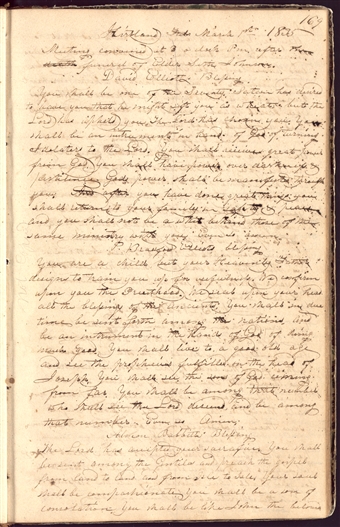 169
Kirtland March 1st 1835
Meeting convened at 3 o clock P.m. after
death funeral of Elder Seth Johnson
David Elliotts Blessing
You shall be one of the Seventy Satan has desired
to have you that he might sift you as wheat but the
Lord has chosen you. You
shall be an instrument in hand of God of turning
to the Lord. You shall receive great power
from God you shall have power over
God power shall be manifested through
you, after you have done great things you
shall return to your family
and you shall not be a whit behind those of the
same ministry with you Even so Amen
P. Bradford Elliots blessing
You are a child but your Heavenly Father
designs to train you up for usefulness. We confirm
upon you the Priesthood, we seal upon your head
all the blessings of the ancients, You shall in due
time be sent forth among the nations, and
be an instrument in the hands of God of doing
much good You shall live to a good old age
and see the prophecies fulfilled on the head of
Joseph You shall see the son of God coming
from far. You shall be among that number
who shall see the Lord descend and be among
that number Even so Amen
Blessing
The Lord has accepted your You shall
be sent among the Gentiles and preach the gospel
from land to land and from sea to sea, your soul
shall be compassionate you shall be a son of
consolation You shall be like John the beloved